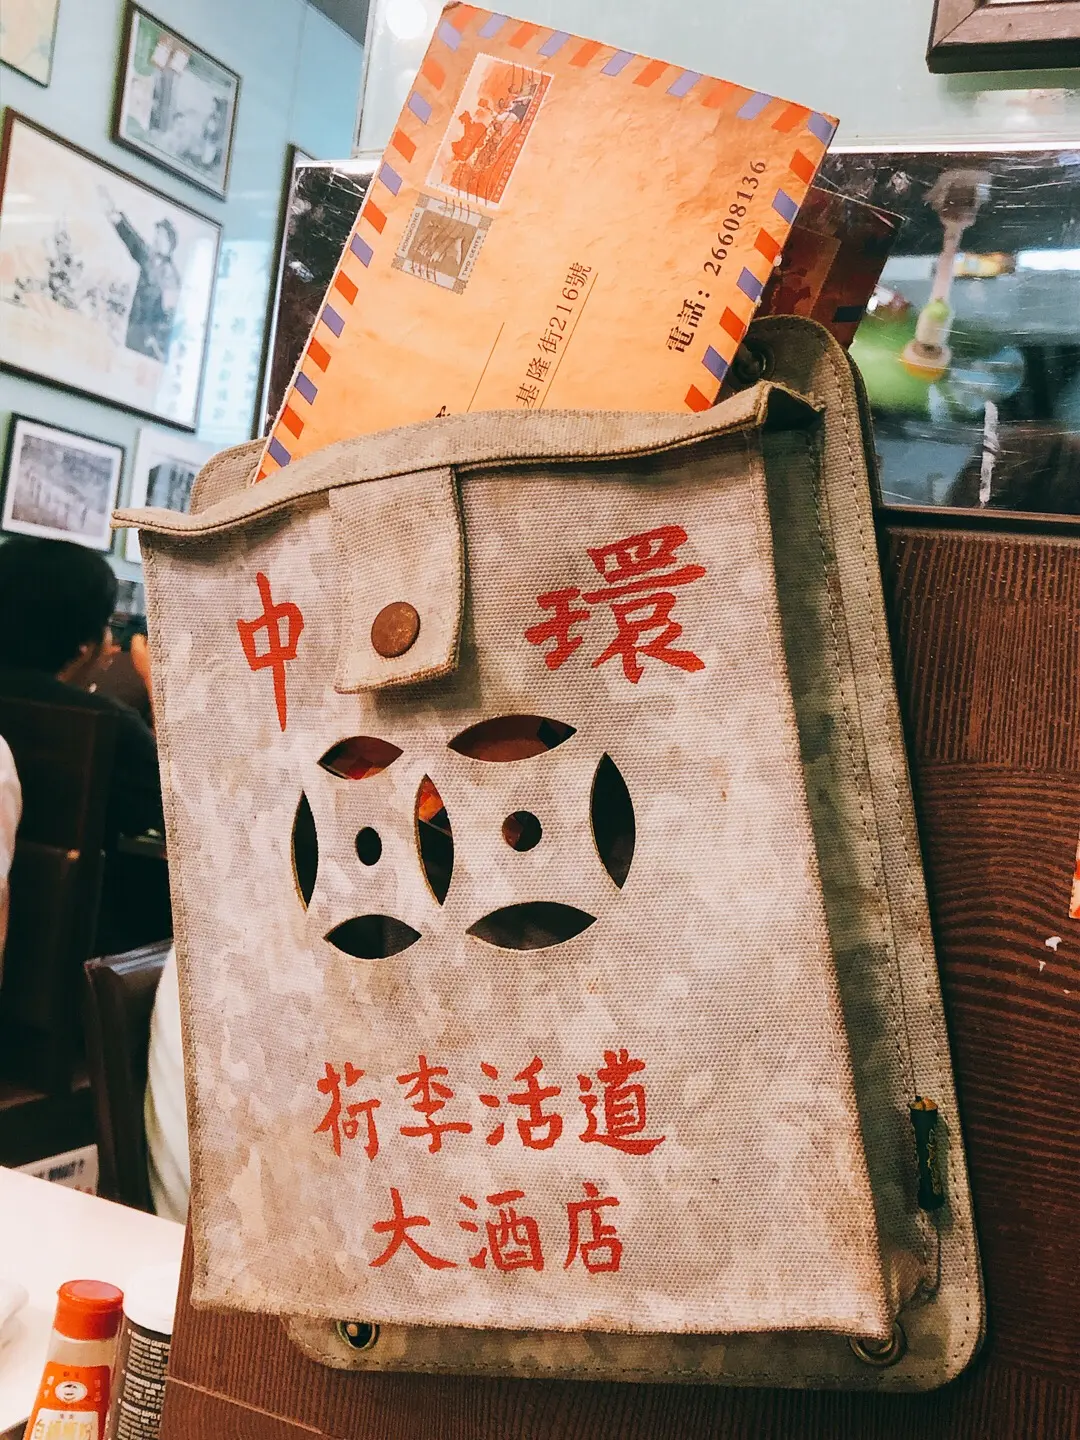 電話：26608136
基隆街216號
TWO CENTS
中 環
荷李活道
大酒店